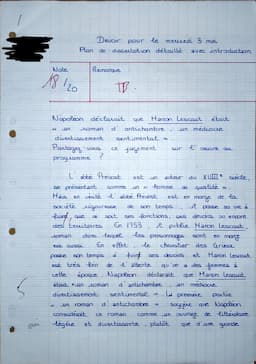 Devoir pour le mercredi 3 mai
Plan de dissertation détaillé avec introduction
Note
Remarque
18/20
TB.
Napoléon déclarait que Manon Lescaut était
« un roman d'antichambre, un médiocre
divertissement sentimental ».
Partagez-vous ce jugement sur l'œuvre au
programme ?
L'abbé Prévost est un auteur du XVIIIe siècle,
se présentant comme un « homme de qualité ».
Mais en vérité l'abbé Prévost est en marge de la
société rigoureuse de son temps. Il passe sa vie à
fuir, que ce soit ses fonctions, ses devoirs ou encore
des territoires. En 1753, il publie Manon Lescaut,
roman dans lequel les personnages sont en marge
eux aussi. En effet le chevalier des Grieux
passe son temps à fuir ses devoirs et Manon Lescaut
est très loin de l'attente qu'on a des femmes à
cette époque. Napoléon déclarait que Manon Lescaut
était « un roman d'antichambre, un médiocre
divertissement sentimental ». La première partie
« un roman d'antichambre » suggère que Napoléon
considérait ce roman comme un ouvrage de littérature
légère et divertissante, plutôt que d'une grande